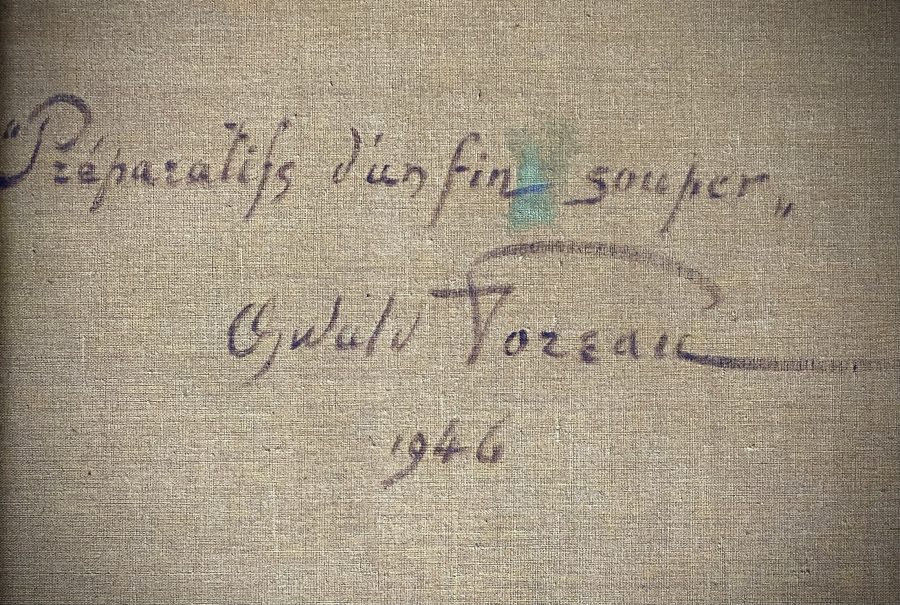 "Préparatifs d'un fin souper„
Oswald Toreau
1946